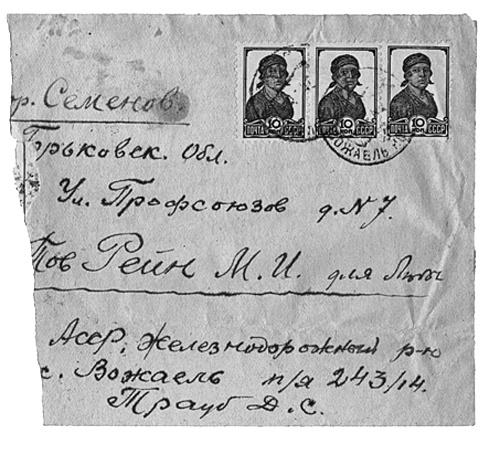 10 10 10
ПОЧТА СССР ПОЧТА СССР ПОЧТА СССР
ВОЖАЕЛЬ
гр. Семенов.
Горьковск. Обл.
Ул. Профсоюзов д. № 7.
Тов Рейн М. И. для Литы
Асср, Железнодорожный р-н
с. Вожаель п/я 243/14.
Трауб Д. С.